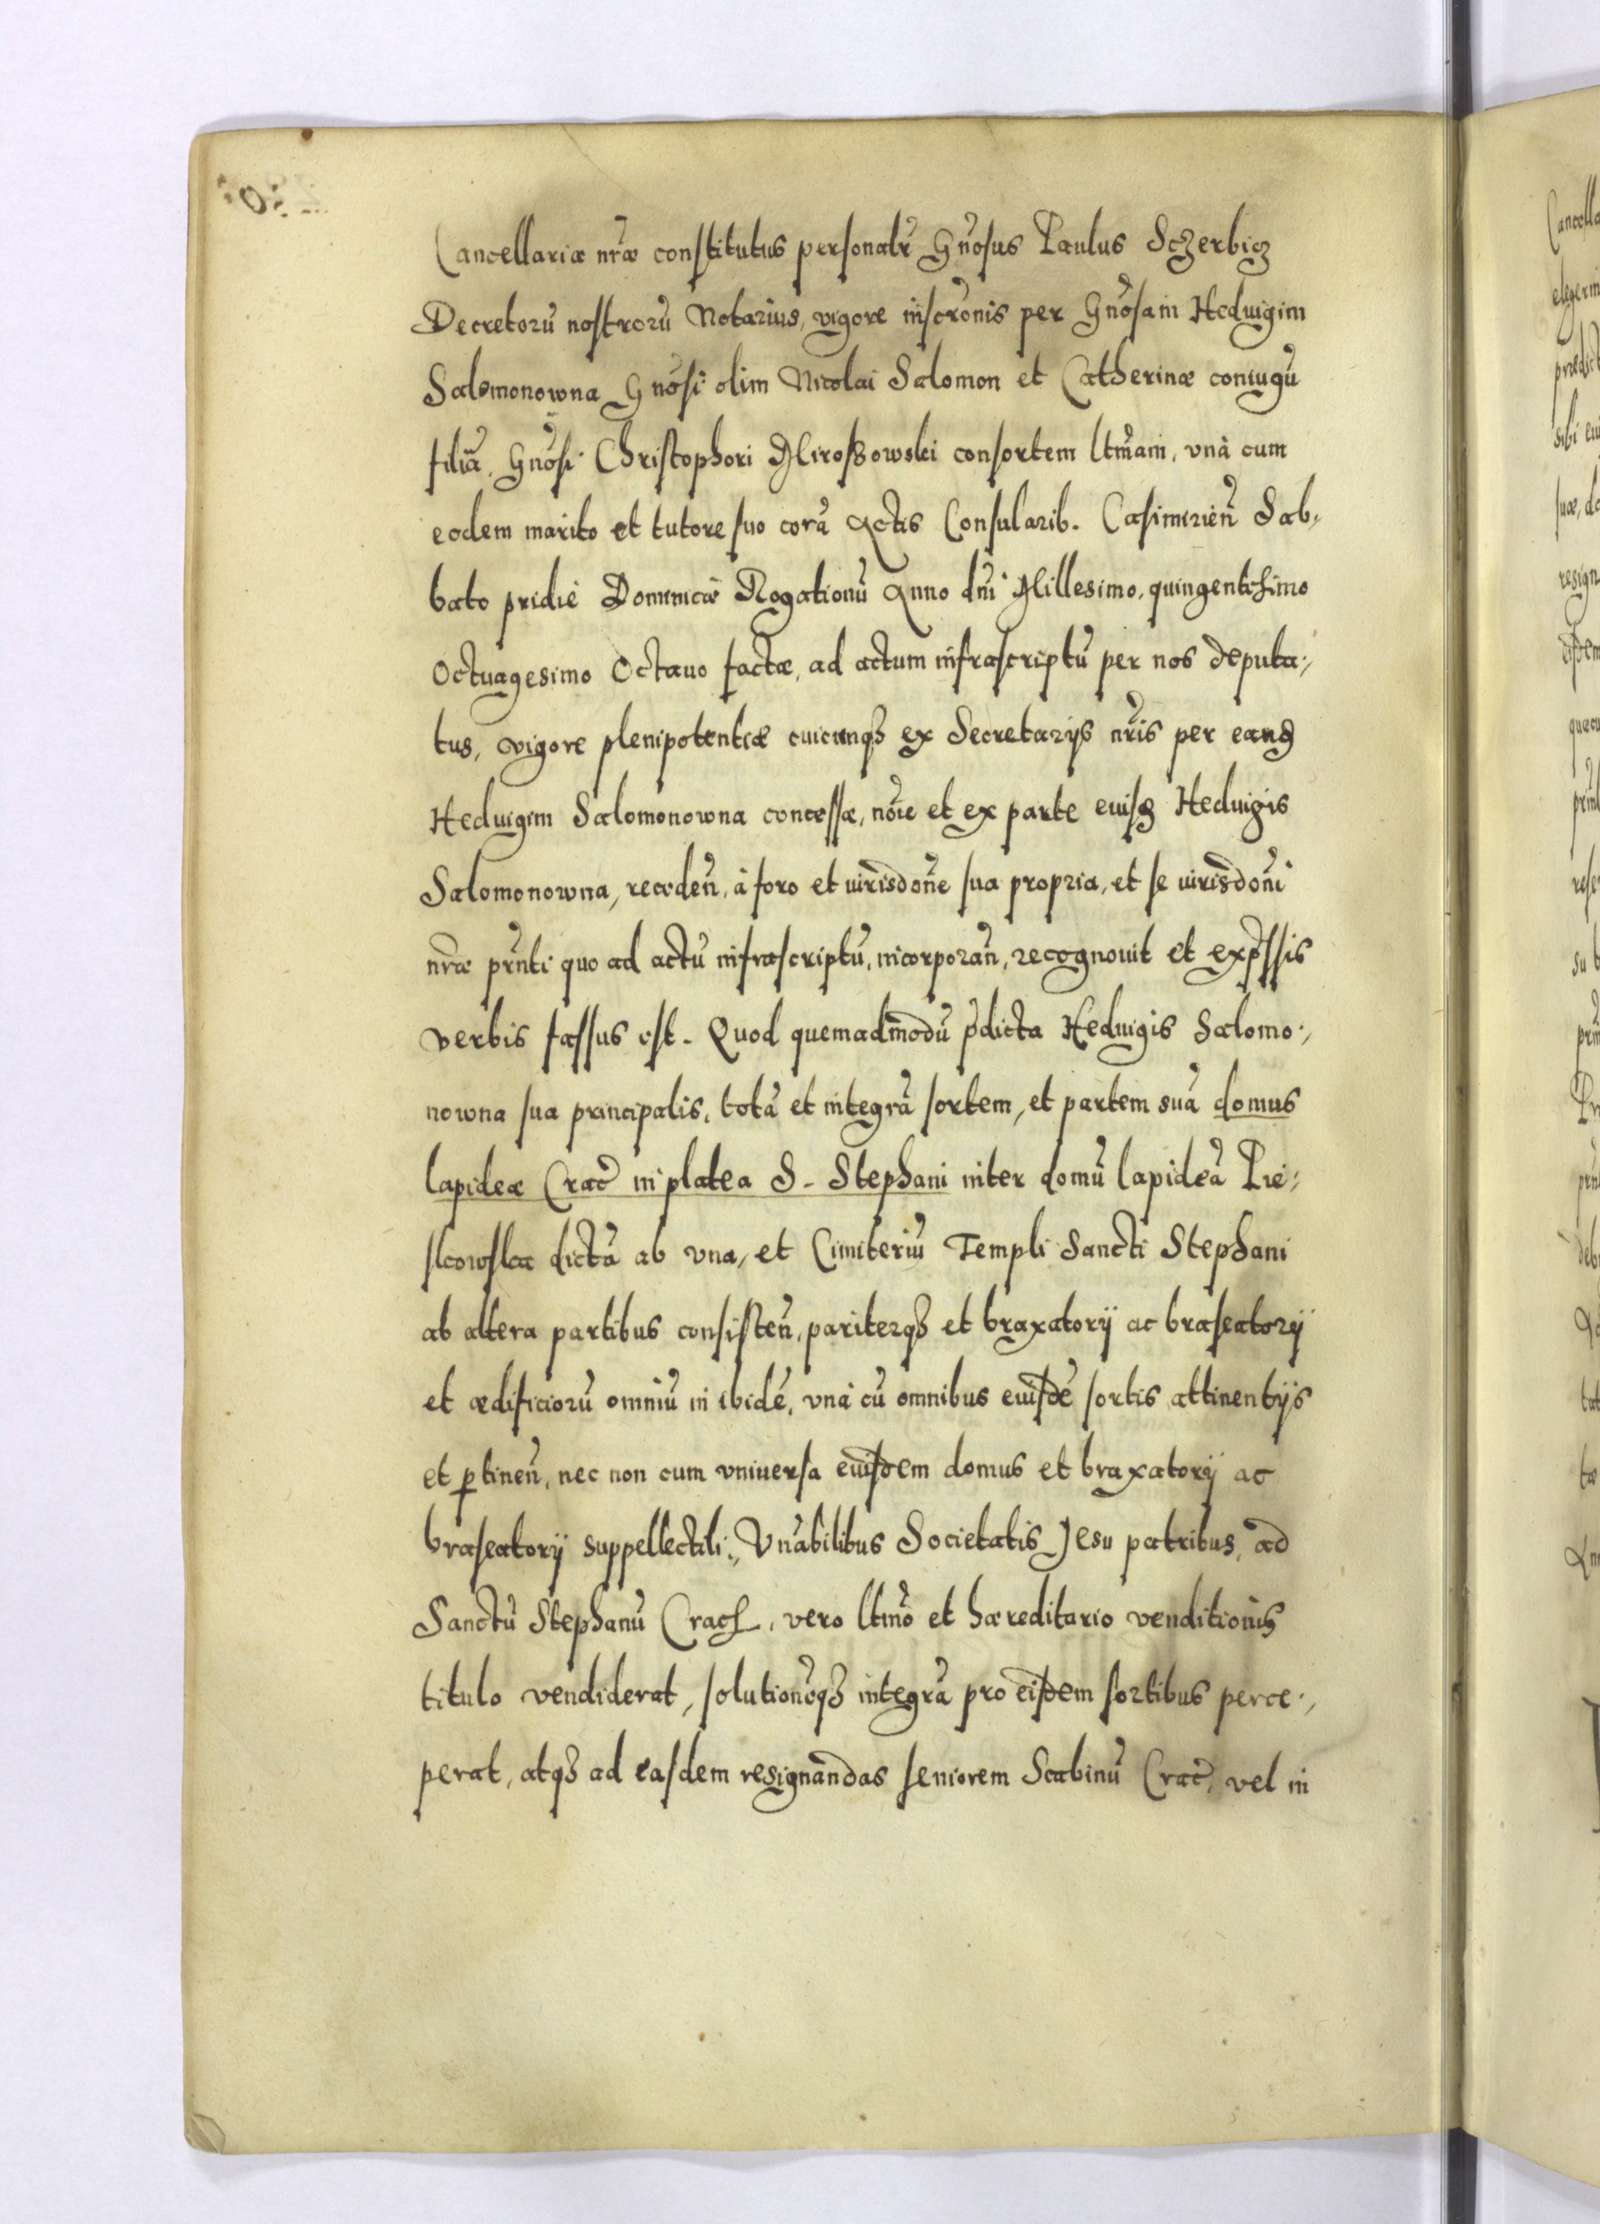 Cancellariæ nr̃æ constitutus personalr̃ Gñosus Paulus Sczerbicz
Decretorũ nostrorũ Notarius, vigore inscrõnis per Gñosam Hedvigim
Salomonowna Gñosi olim Nicolai Salomon et Catherinæ coniugũ
filiã, Gñosi Christophori Miroszowski consortem ltm̃am, vnà cum
eodem marito et tutore suo corã Actis Consularib. Casimirieñ Sab,
bato pridiè Dominicæ Rogationũ Anno dñi Millesimo, quingentisimo
Octuagesimo Octauo factæ, ad actum infrascriptũ per nos deputa,
tus, vigore plenipotentiæ cuicunqȝ ex Secretarijs nr̃is per eand
Hedvigim Salomonowna concessæ, nõie et ex parte euisd Hedvigis
Salomonowna, recedeñ, à foro et iurisdõne sua propria, et se iurisdõni
nr̃æ pr̃nti quo ad actũ infrascriptũ, incorporañ, recognouit et exp̃ssis
verbis fassus est. Quod quemadmodũ p̃dicta Hedvigis Salomo,
nowna sua principalis, totã et integrã sortem, et partem suã domus
lapideæ Crac̃ in platea S. Stephani inter domũ lapideã Pie,
skowska dictã ab vna, et Cimiteriũ Templi Sancti Stephani
ab altera partibus consisteñ, pariterqȝ et braxatorij ac braseatorij
et ædificiorũ omniũ in ibidẽ, vnà cũ omnibus euisdẽ sortis attinentijs
et ꝑtineñ, nec non cum vniuersa euisdem domus et braxatorij ac
braseatorij suppellectili, Vñabilibus Societatis Jesu patribus, ad
Sanctũ Stephanũ Crac̃, vero ltm̃o et hæreditario venditionis
titulo vendiderat, solutionẽqȝ integrã pro eisdem sortibus perce,
perat, atqȝ ad easdem resignandas seniorem Scabinũ Crac̃, vel in